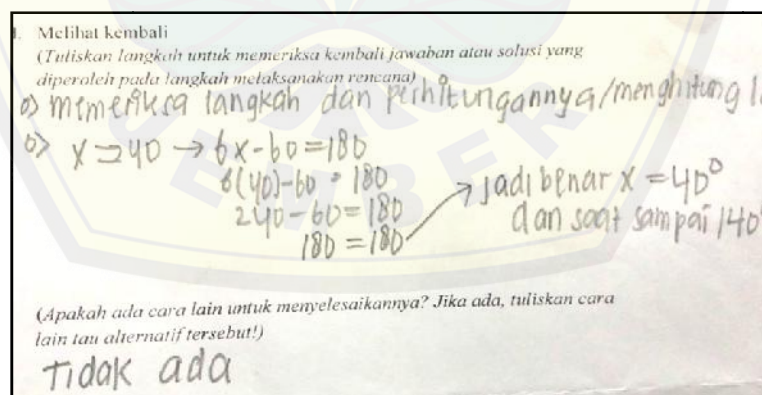 Melihat kembali
(Tuliskan langkah untuk memeriksa kembali jawaban atau solusi yang
diperoleh pada langkah melaksanakan rencana)
o) memeriksa langkah dan perhitungannya/menghitung
o) x = 40 → 6x - 60 = 180
6(40) - 60 = 180
240 - 60 = 180
180 = 180
→ jadi benar x = 40°
dan saat sampai 140°
(Apakah ada cara lain untuk menyelesaikannya? Jika ada, tuliskan cara
lain tau alternatif tersebut!)
Tidak ada